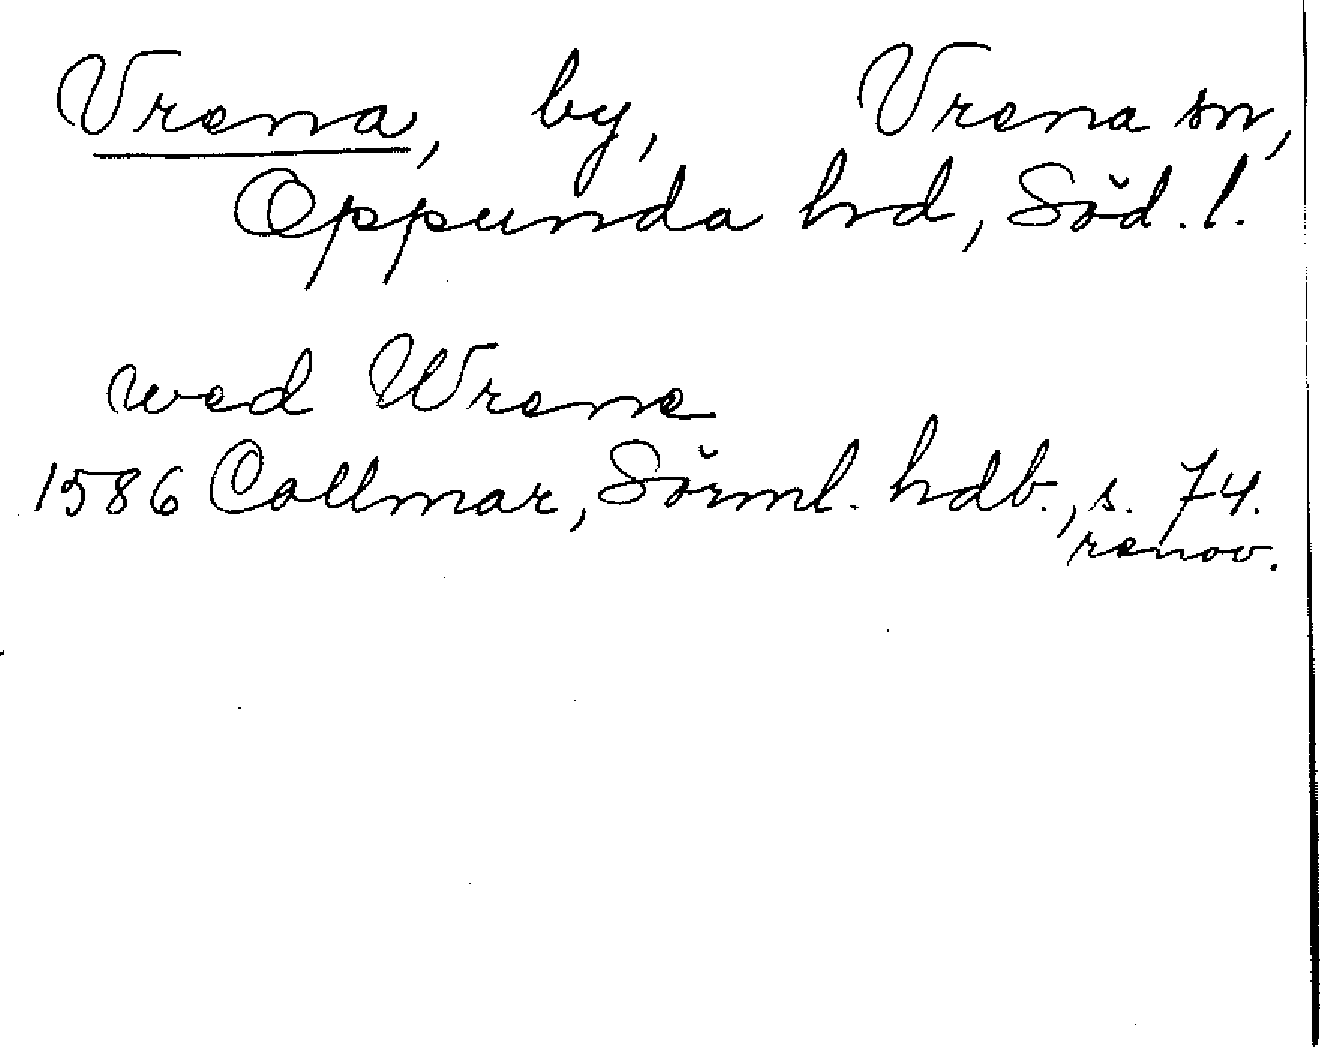 Vrena, by, Vrena sn,
Oppunda hd, Söd. l.
wed Wrene
1586 Collmar, Sörml. hdb., s. 74.
renov.